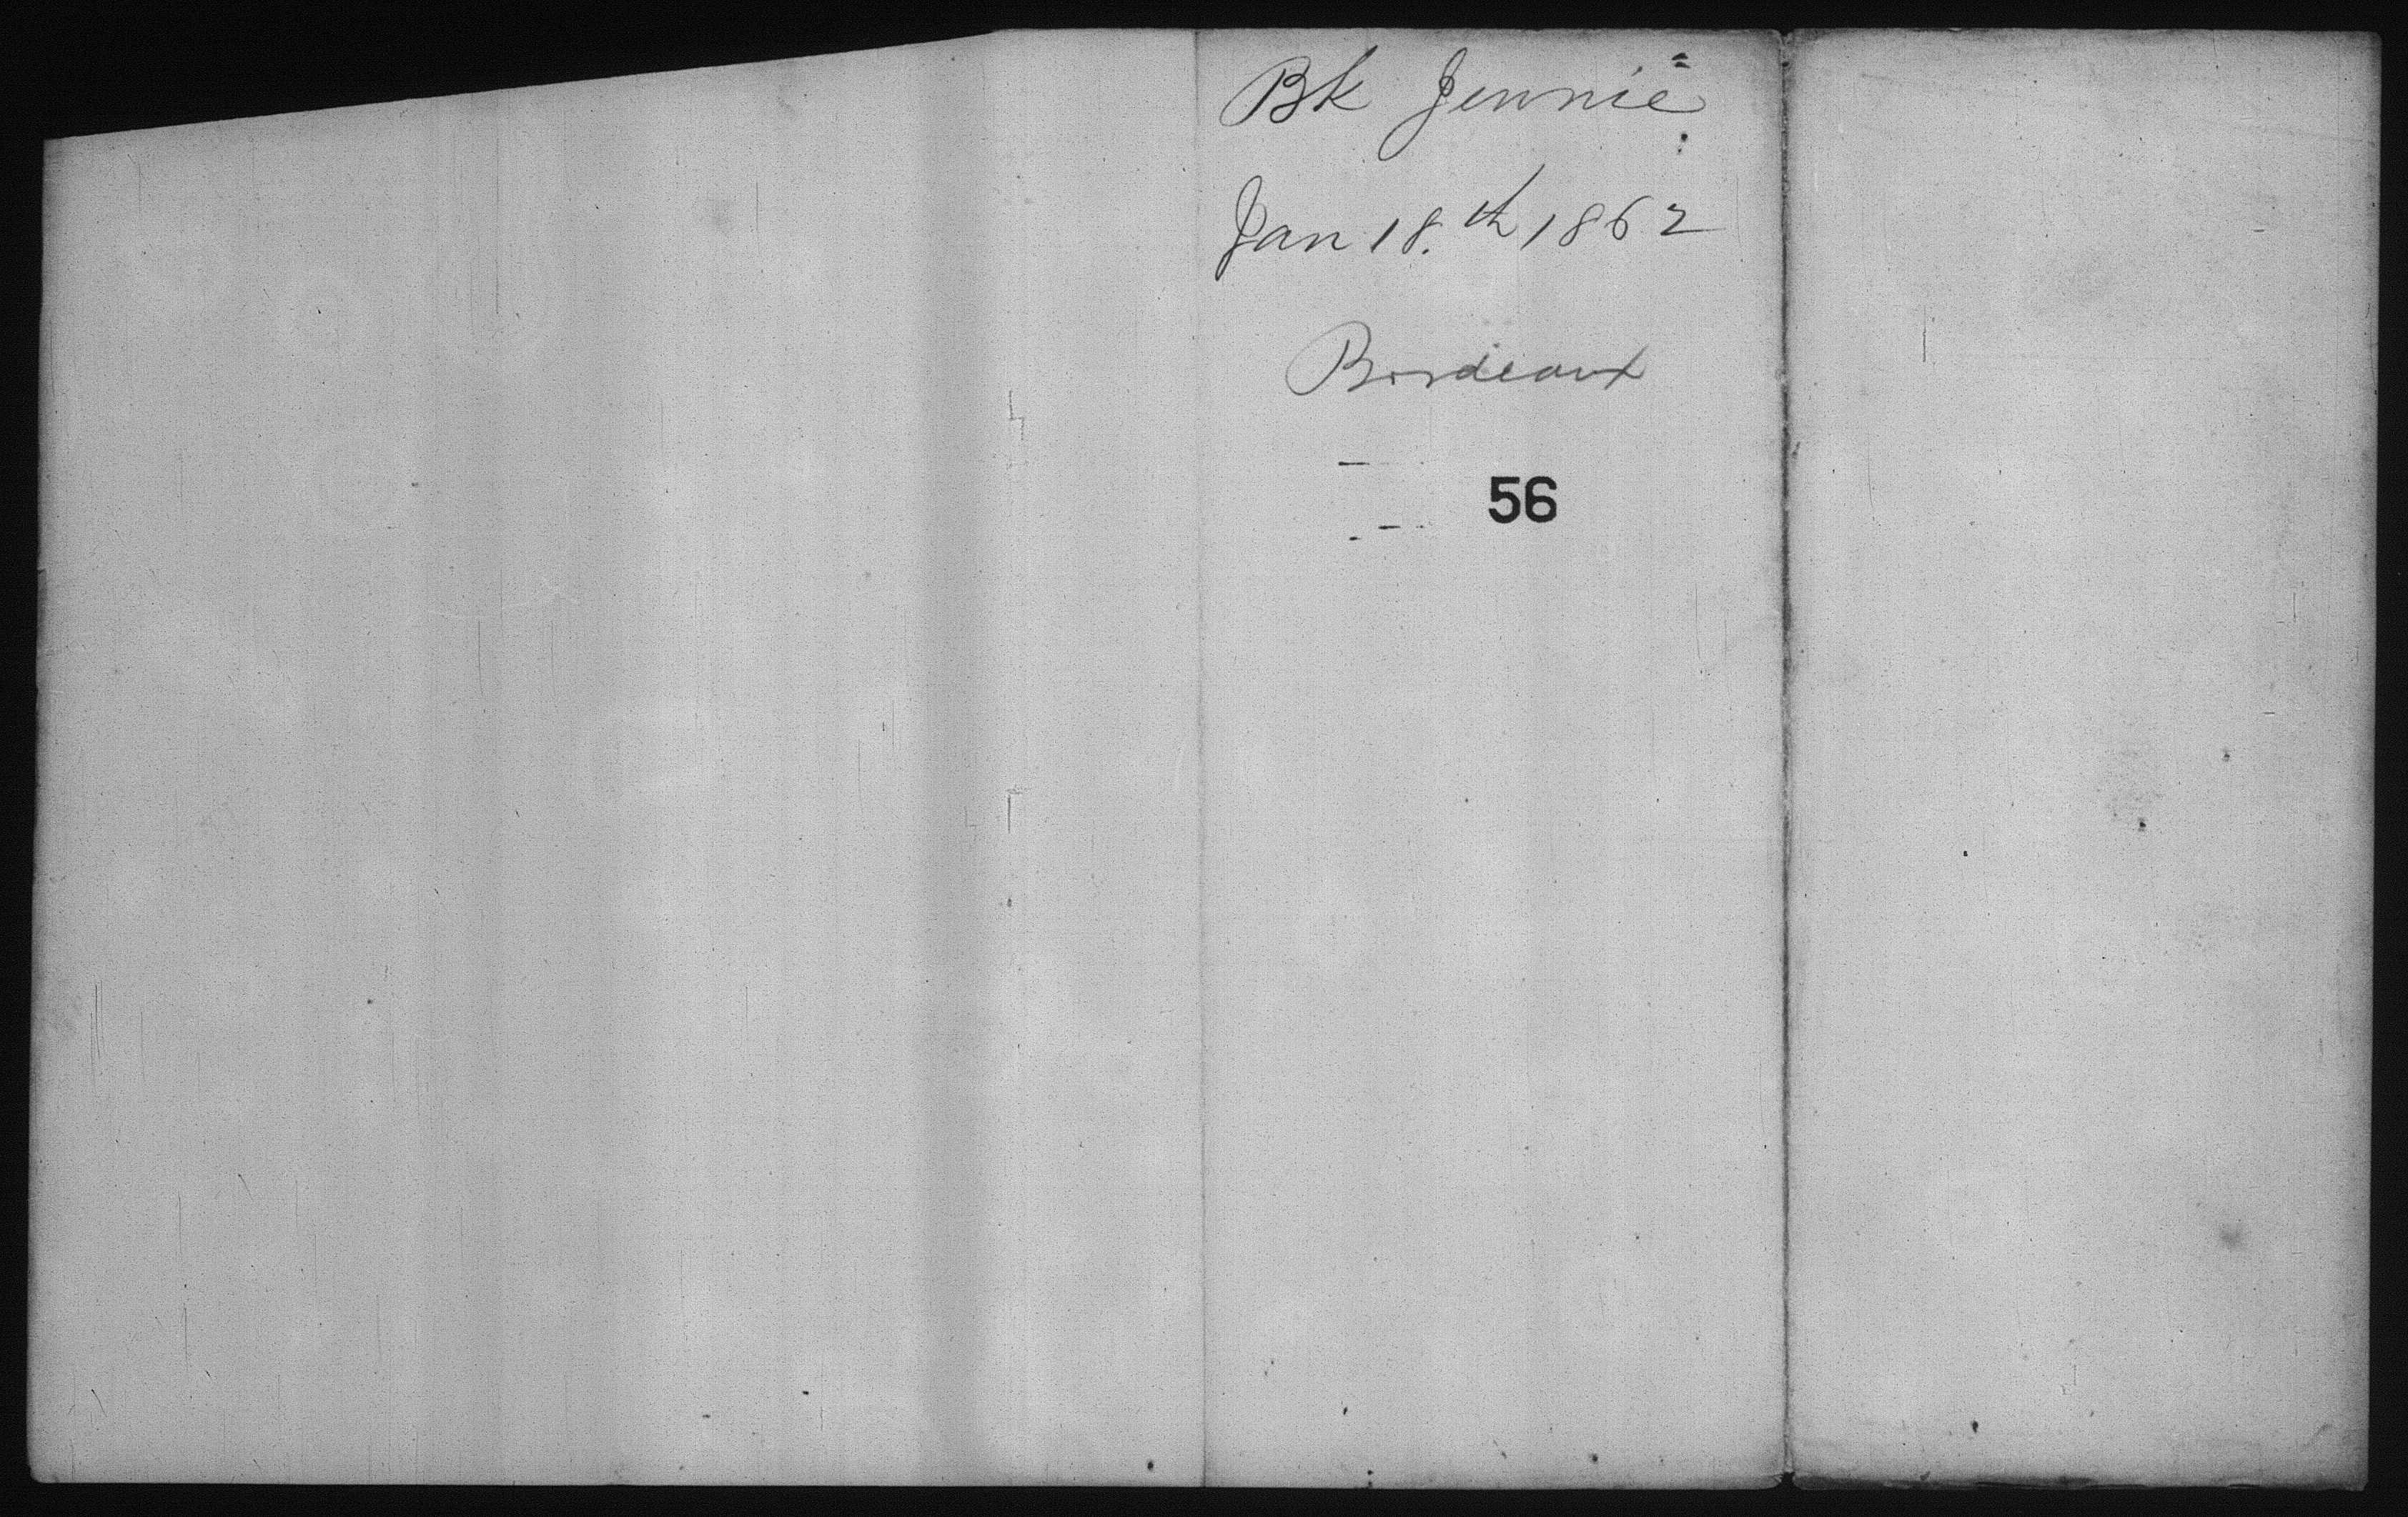 Bk Jennie
Jan 18.th 1862
Bordeaux
56